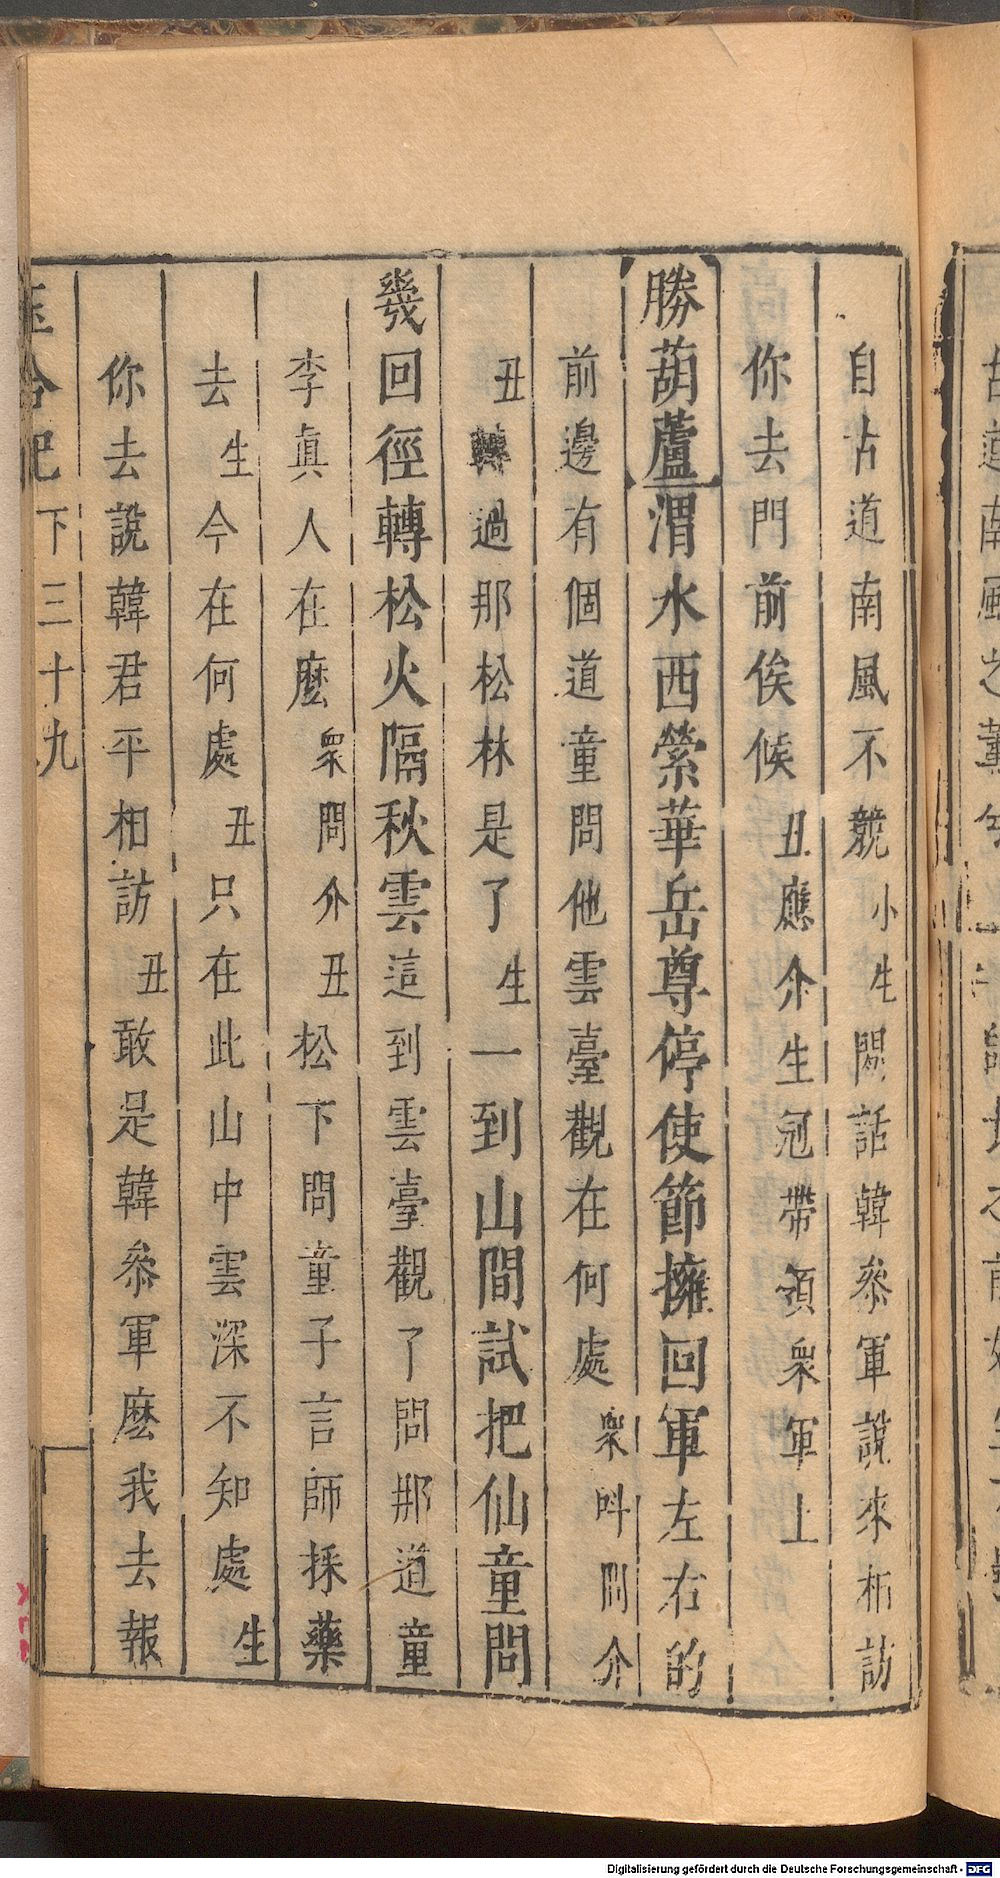 自古道南風不競小生閑話韓叅軍說來相訪
你去門前俟候丑應介生冠帶領衆軍上
勝葫蘆渭水西縈華岳尊停使節擁回軍左右的
前邊有個道童問他雲臺觀在何處衆呌問介
丑轉過那松林是了生一到山間試把仙童問
幾回徑轉松火隔秋雲這到雲臺觀了問那道童
李真人在麽衆問介丑松下問童子言師採藥
去生今在何處丑只在此山中雲深不知處生
你去說韓君平相訪丑敢是韓叅軍麽我去報
玉合記下三十九
Digitalisierung gefördert durch die Deutsche Forschungsgemeinschaft - DFG